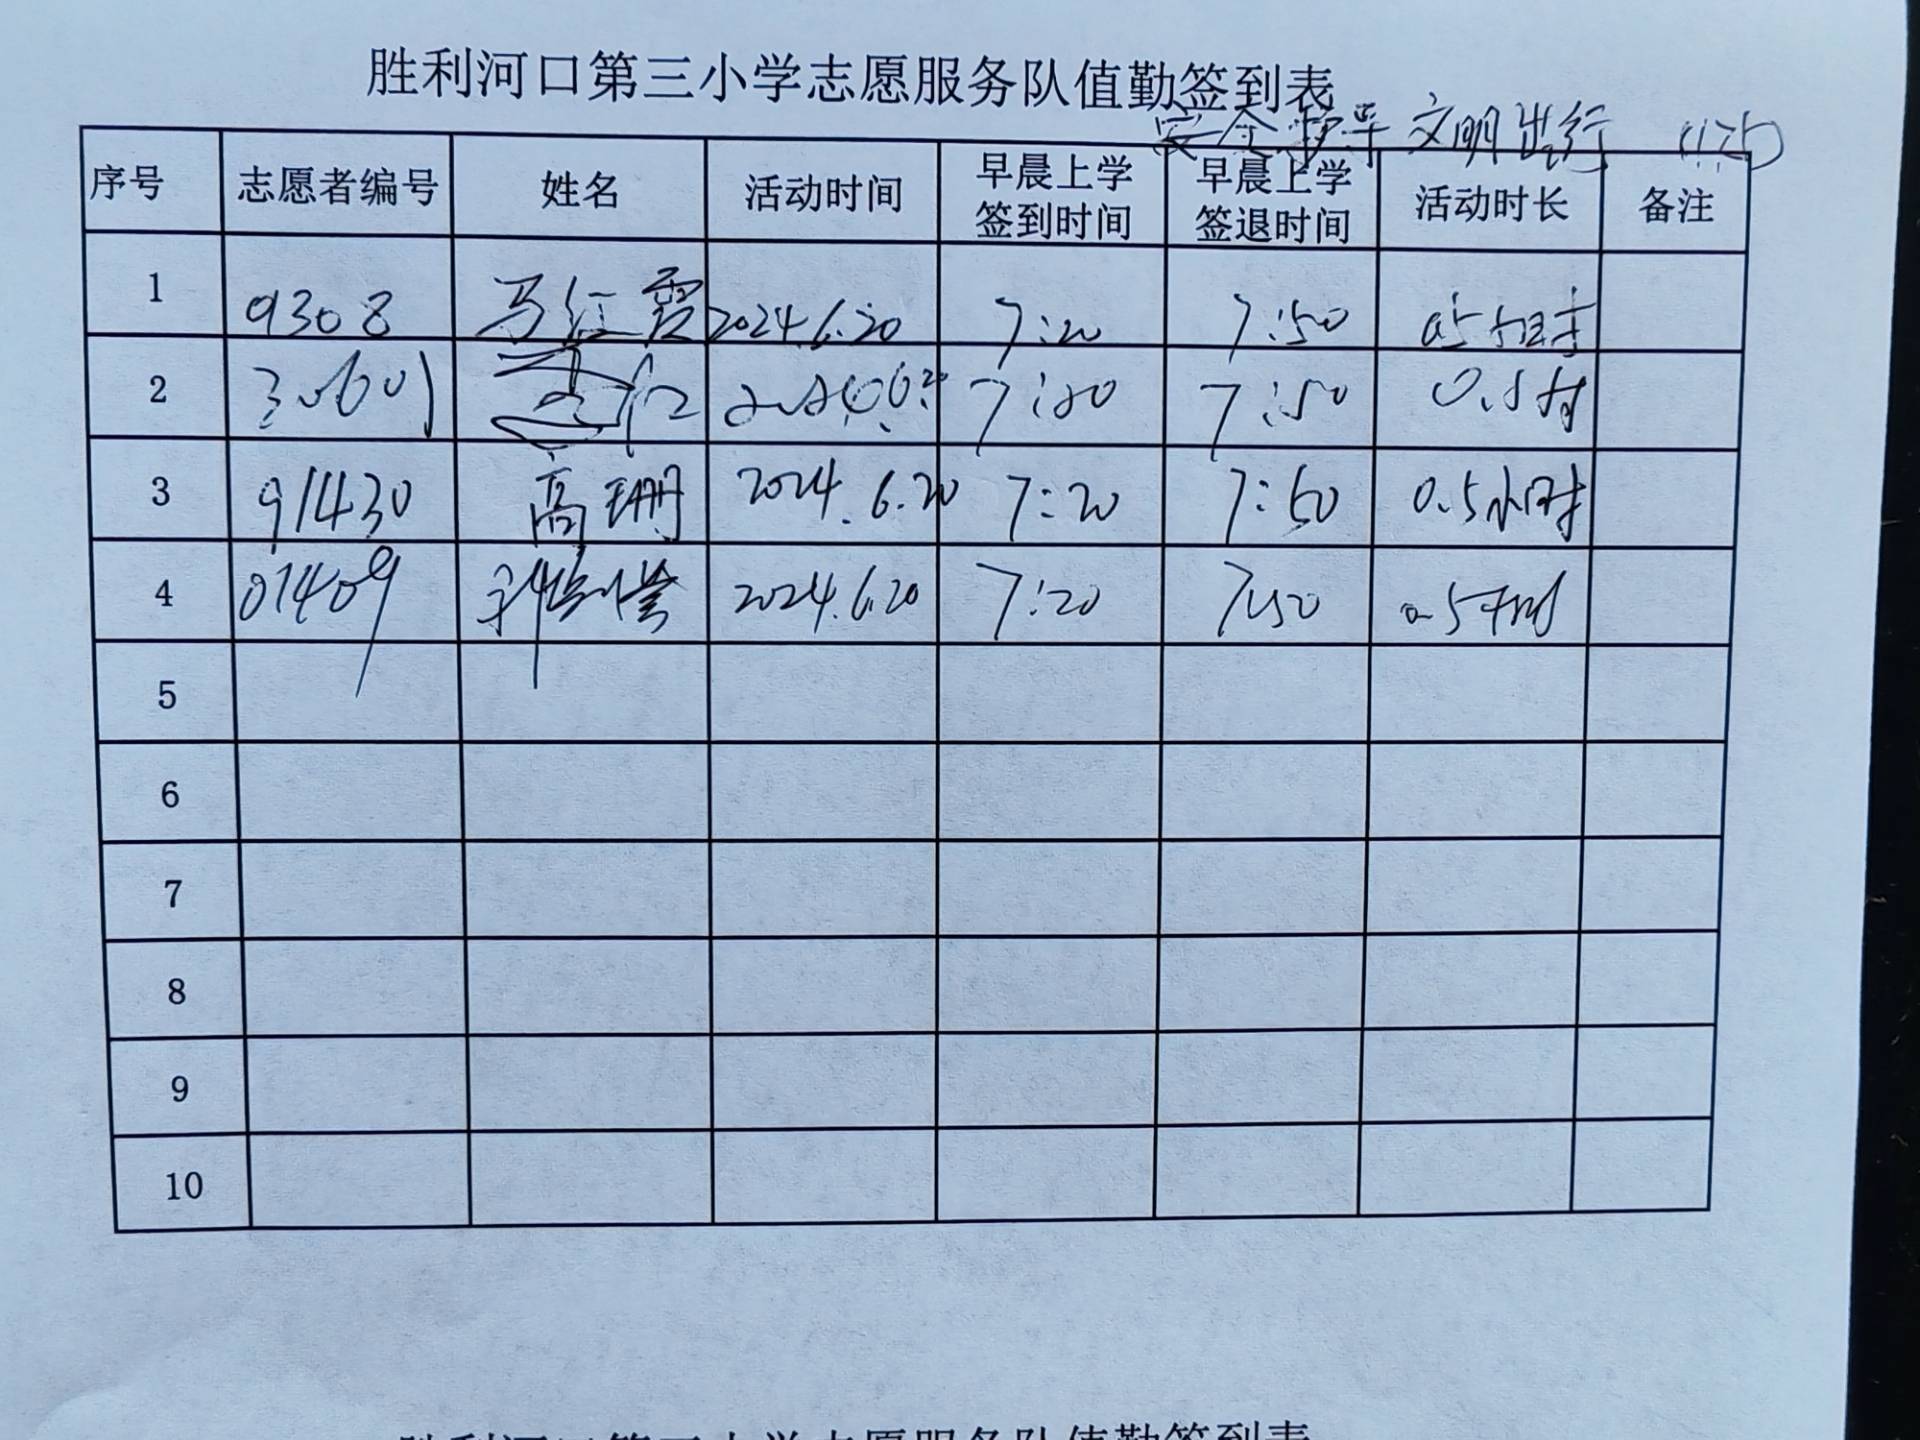 胜利河口第三小学志愿服务队值勤签到表
安全 文明出行 (175)
序号 志愿者编号 姓名 活动时间 早晨上学签到时间 早晨上学签退时间 活动时长 备注
1 9308 马红霞 2024.6.20 7:20 7:50 0.5小时
2 7:20 7:50 0.5时
3 91430 高珊 2024.6.20 7:20 7:50 0.5小时
4 01409 2024.6.20 7:20 7:50 0.5小时
5
6
7
8
9
10
胜利河口第三小学志愿服务队值勤签到表